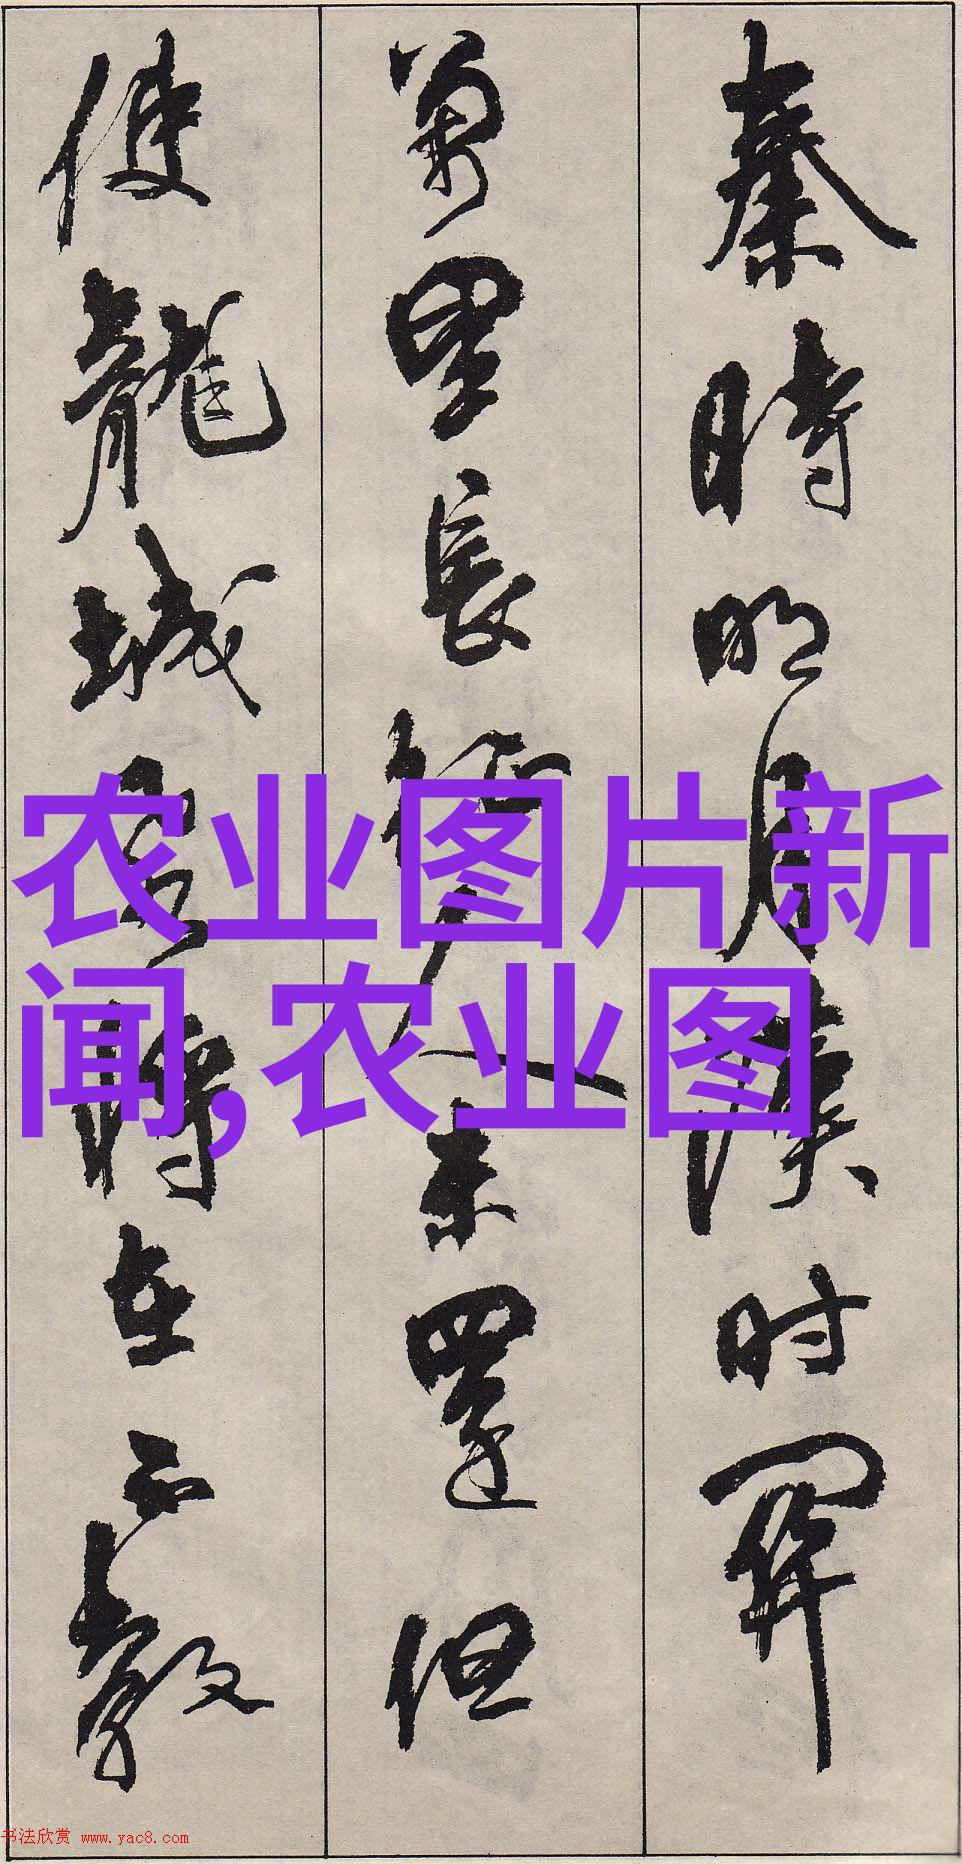 秦時明月漢时関
萬里長征人未還但
使龍城飛將在不教
农业图片新
闻,农业图
书法欣赏 www.yac8.com